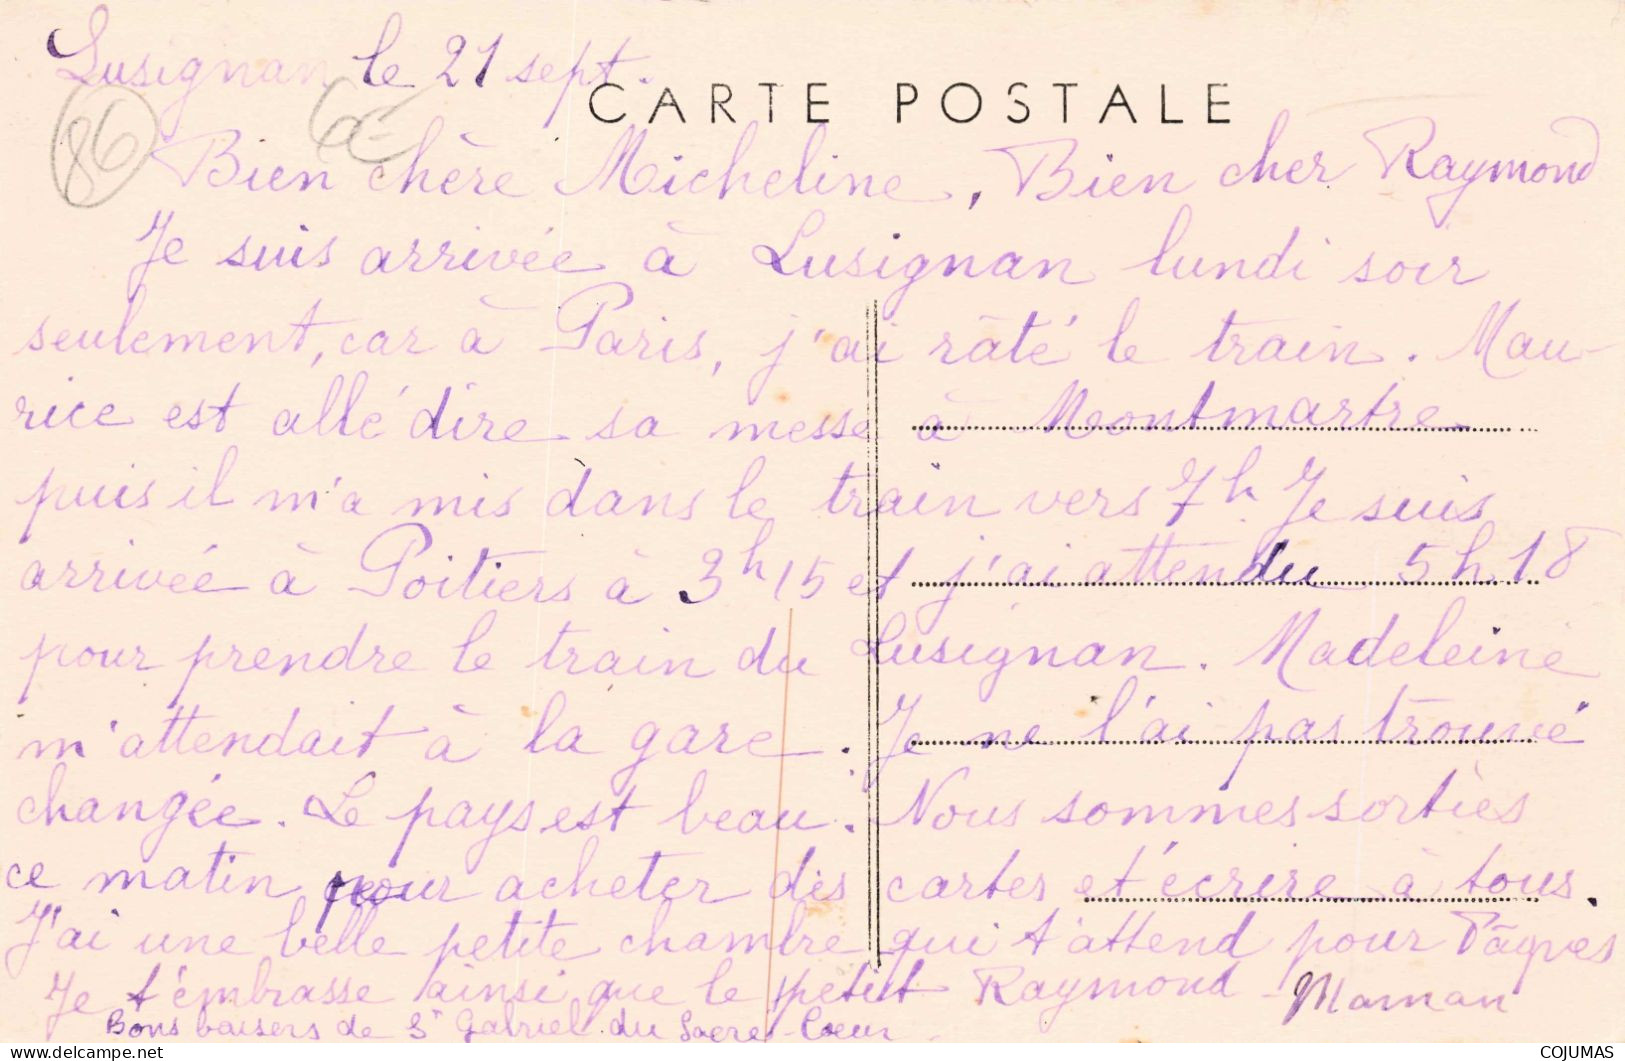 Lusignan le 21 sept.
CARTE POSTALE
86
Bien chère Micheline, Bien cher Raymond
Je suis arrivée à Lusignan lundi soir
seulement, car à Paris, j'ai râté le train. Mau-
rice est allé dire sa messe à Montmartre
puis il m'a mis dans le train vers 7h. Je suis
arrivée à Poitiers à 3h15 et j'ai attendu 5h18
pour prendre le train du Lusignan. Madeleine
m'attendait à la gare. Je ne l'ai pas trouvé
changée. Le pays est beau. Nous sommes sorties
ce matin pour acheter des cartes et écrire à tous.
J'ai une belle petite chambre qui t'attend pour Pâques
Je t'embrasse ainsi que le petit Raymond - Maman
Bons baisers de Sr Gabriel du Sacré-Coeur.
COJUMAS